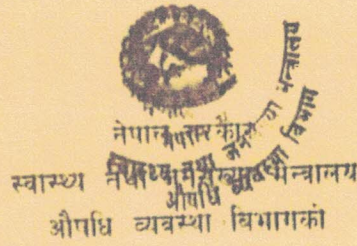 नेपाल सरकार
स्वास्थ्य तथा जनसंख्या मन्त्रालय
औषधि
औषधि व्यवस्था विभागको